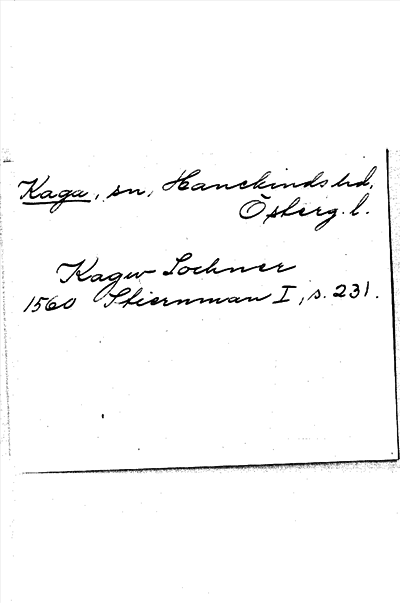 Kaga, sn, Hanekinds hd,
Österg. l.
Kagw Sochner
1560 Stiernman I, s. 231.